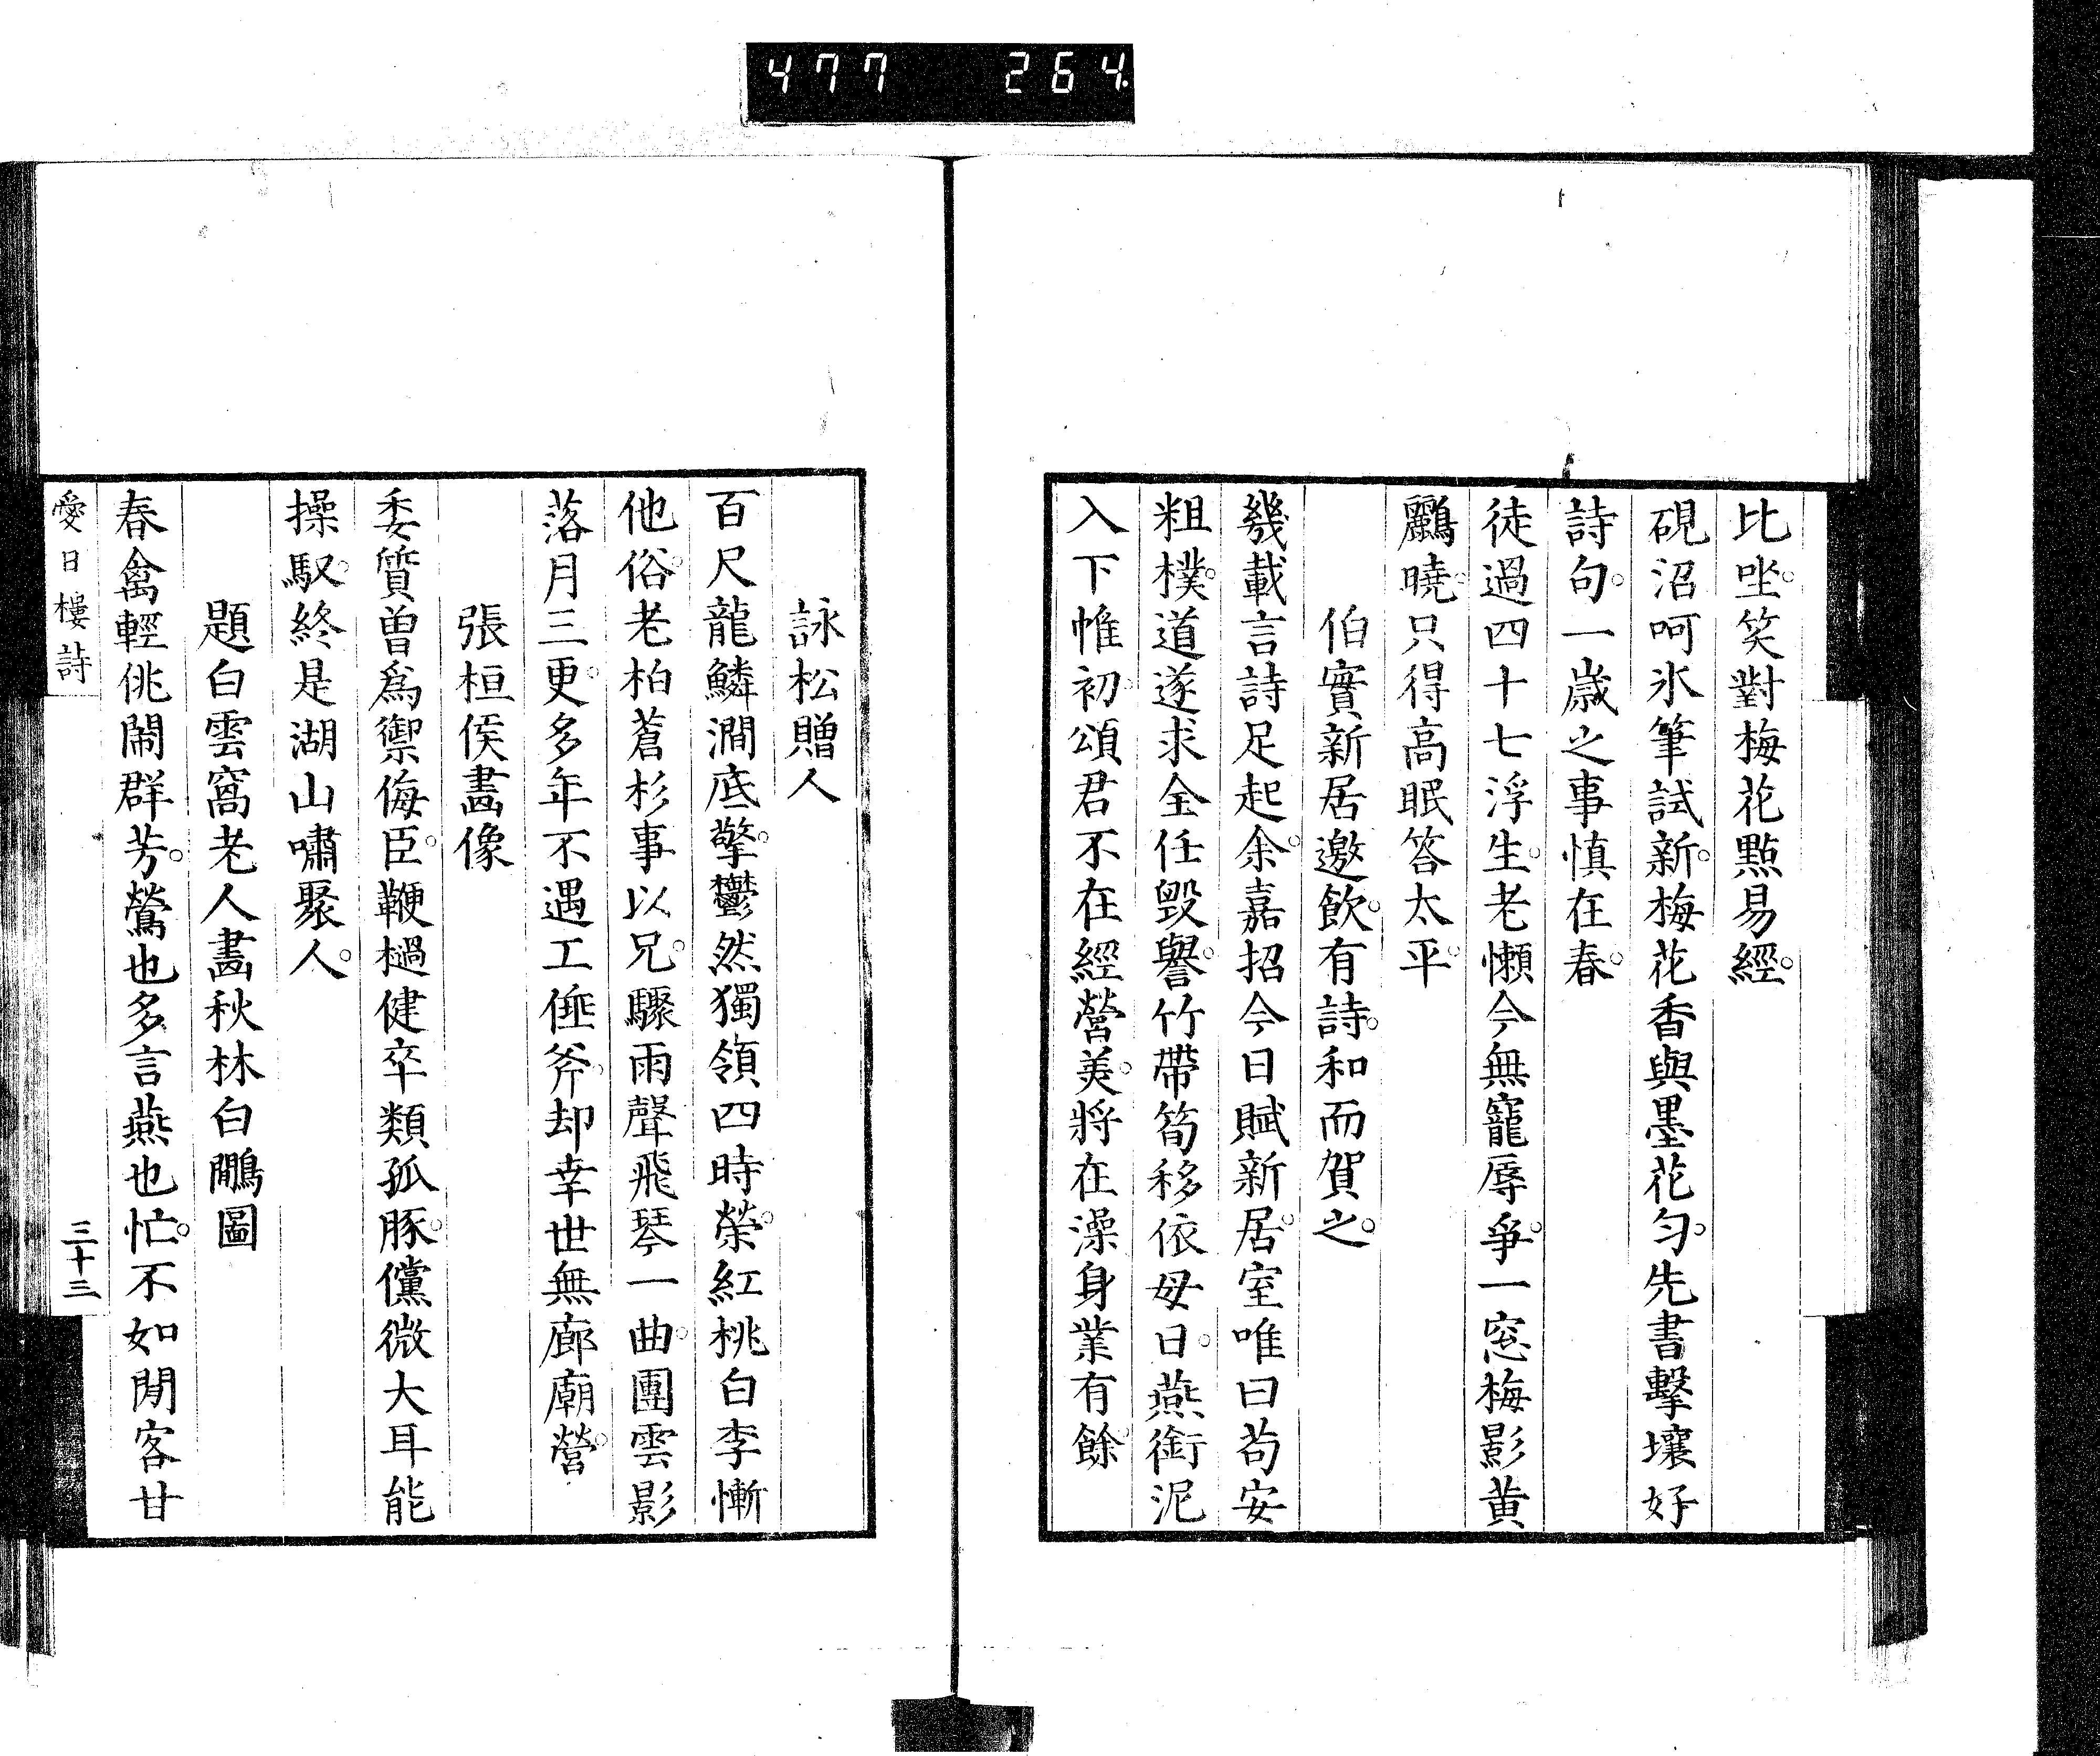 477 264
比坐。笑對梅花點易經。
硯沼呵氷筆試新。梅花香與墨花匀。先書擊壤好
詩句。一歲之事慎在春。
徒過四十七浮生。老懶今無寵辱爭。一窓梅影黄
鸝曉。只得高眠答太平。
伯實新居邀飲。有詩。和而賀之。
幾載言詩足起余。嘉招今日賦新居。室唯曰苟安
粗樸。道遂求全任毀譽。竹帶筍移依母日。燕銜泥
入下帷初。頌君不在經營美。將在澡身業有餘。
詠松贈人
百尺龍鱗澗底擎。鬱然獨領四時榮。紅桃白李慚
他俗。老柏蒼杉事以兄。驟雨聲飛琴一曲。團雲影
落月三更。多年不遇工倕斧。却幸世無廊廟營。
張桓侯畫像
委質曽爲禦侮臣。鞭檛健卒類孤豚。儻微大耳能
操馭。終是湖山嘯聚人。
題白雲窩老人畫秋林白鷴圖
春禽輕佻鬧群芳。鶯也多言燕也忙。不如閒客甘
愛日樓詩
三十三